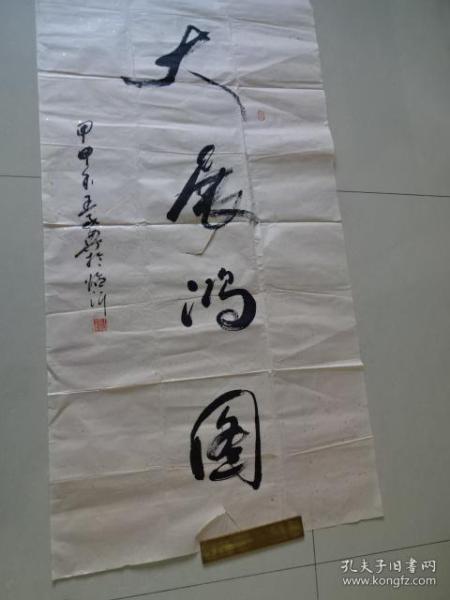 大展鸿图
甲申
于临沂
孔夫子旧书网
www.kongfz.com